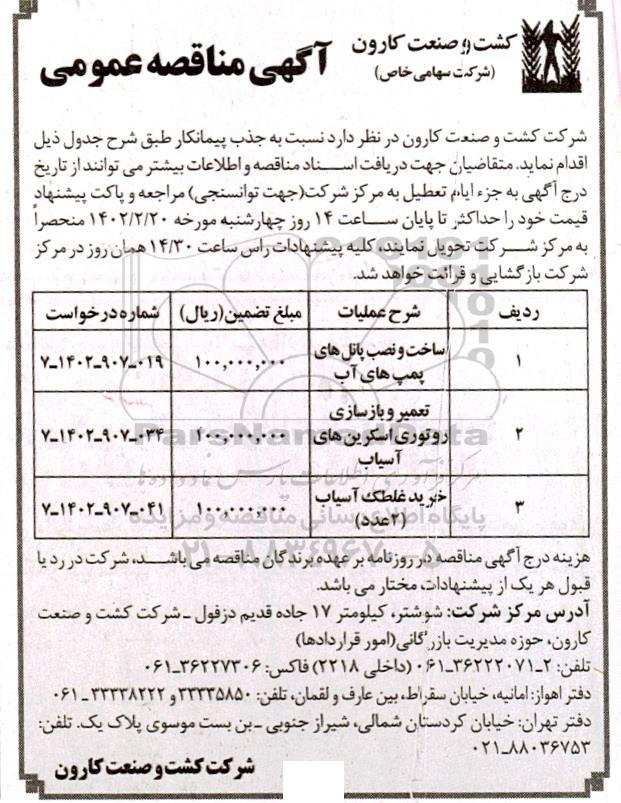 کشت و صنعت کارون
(شرکت سهامی خاص)
آگهی مناقصه عمومی
شرکت کشت و صنعت کارون در نظر دارد نسبت به جذب پیمانکار طبق شرح جدول ذیل
اقدام نماید. متقاضیان جهت دریافت اسناد مناقصه و اطلاعات بیشتر می توانند از تاریخ
درج آگهی به جزء ایام تعطیل به مرکز شرکت(جهت توانسنجی) مراجعه و پاکت پیشنهاد
قیمت خود را حداکثر تا پایان ساعت ۱۴ روز چهارشنبه مورخه ۱۴۰۲/۲/۲۰ منحصراً
به مرکز شرکت تحویل نمایند، کلیه پیشنهادات راس ساعت ۱۴/۳۰ همان روز در مرکز
شرکت بازگشایی و قرائت خواهد شد.
ردیف شرح عملیات مبلغ تضمین(ریال) شماره درخواست
۱ ساخت و نصب پانل های پمپ های آب ۱۰۰,۰۰۰,۰۰۰ ۷-۱۴۰۲-۹۰۷-۰۱۹
۲ تعمیر و بازسازی روتوری اسکرین های آسیاب ۱۰۰,۰۰۰,۰۰۰ ۷-۱۴۰۲-۹۰۷-۰۳۴
۳ خرید غلطک آسیاب (۲عدد) ۱۰۰,۰۰۰,۰۰۰ ۷-۱۴۰۲-۹۰۷-۰۴۱
ParsNamadData
مرکز فرآوری اطلاعات پارس نماد داده ها
پایگاه اطلاع رسانی مناقصه و مزایده
۰۲۱-۸۸۳۴۹۶۷۰-۵
هزینه درج آگهی مناقصه در روزنامه بر عهده برندگان مناقصه می باشد، شرکت در رد یا
قبول هر یک از پیشنهادات مختار می باشد.
آدرس مرکز شرکت: شوشتر، کیلومتر ۱۷ جاده قدیم دزفول ـ شرکت کشت و صنعت
کارون، حوزه مدیریت بازرگانی(امور قراردادها)
تلفن: ۲-۳۶۲۲۲۰۷۱-۰۶۱ (داخلی ۲۲۱۸) فاکس: ۳۶۲۲۷۳۰۶-۰۶۱
دفتر اهواز: امانیه، خیابان سقراط، بین عارف و لقمان، تلفن: ۳۳۳۳۵۸۵۰ و ۳۳۳۳۸۲۲۲ - ۰۶۱
دفتر تهران: خیابان کردستان شمالی، شیراز جنوبی ـ بن بست موسوی پلاک یک. تلفن:
۰۲۱-۸۸۰۳۶۷۵۳
شرکت کشت و صنعت کارون